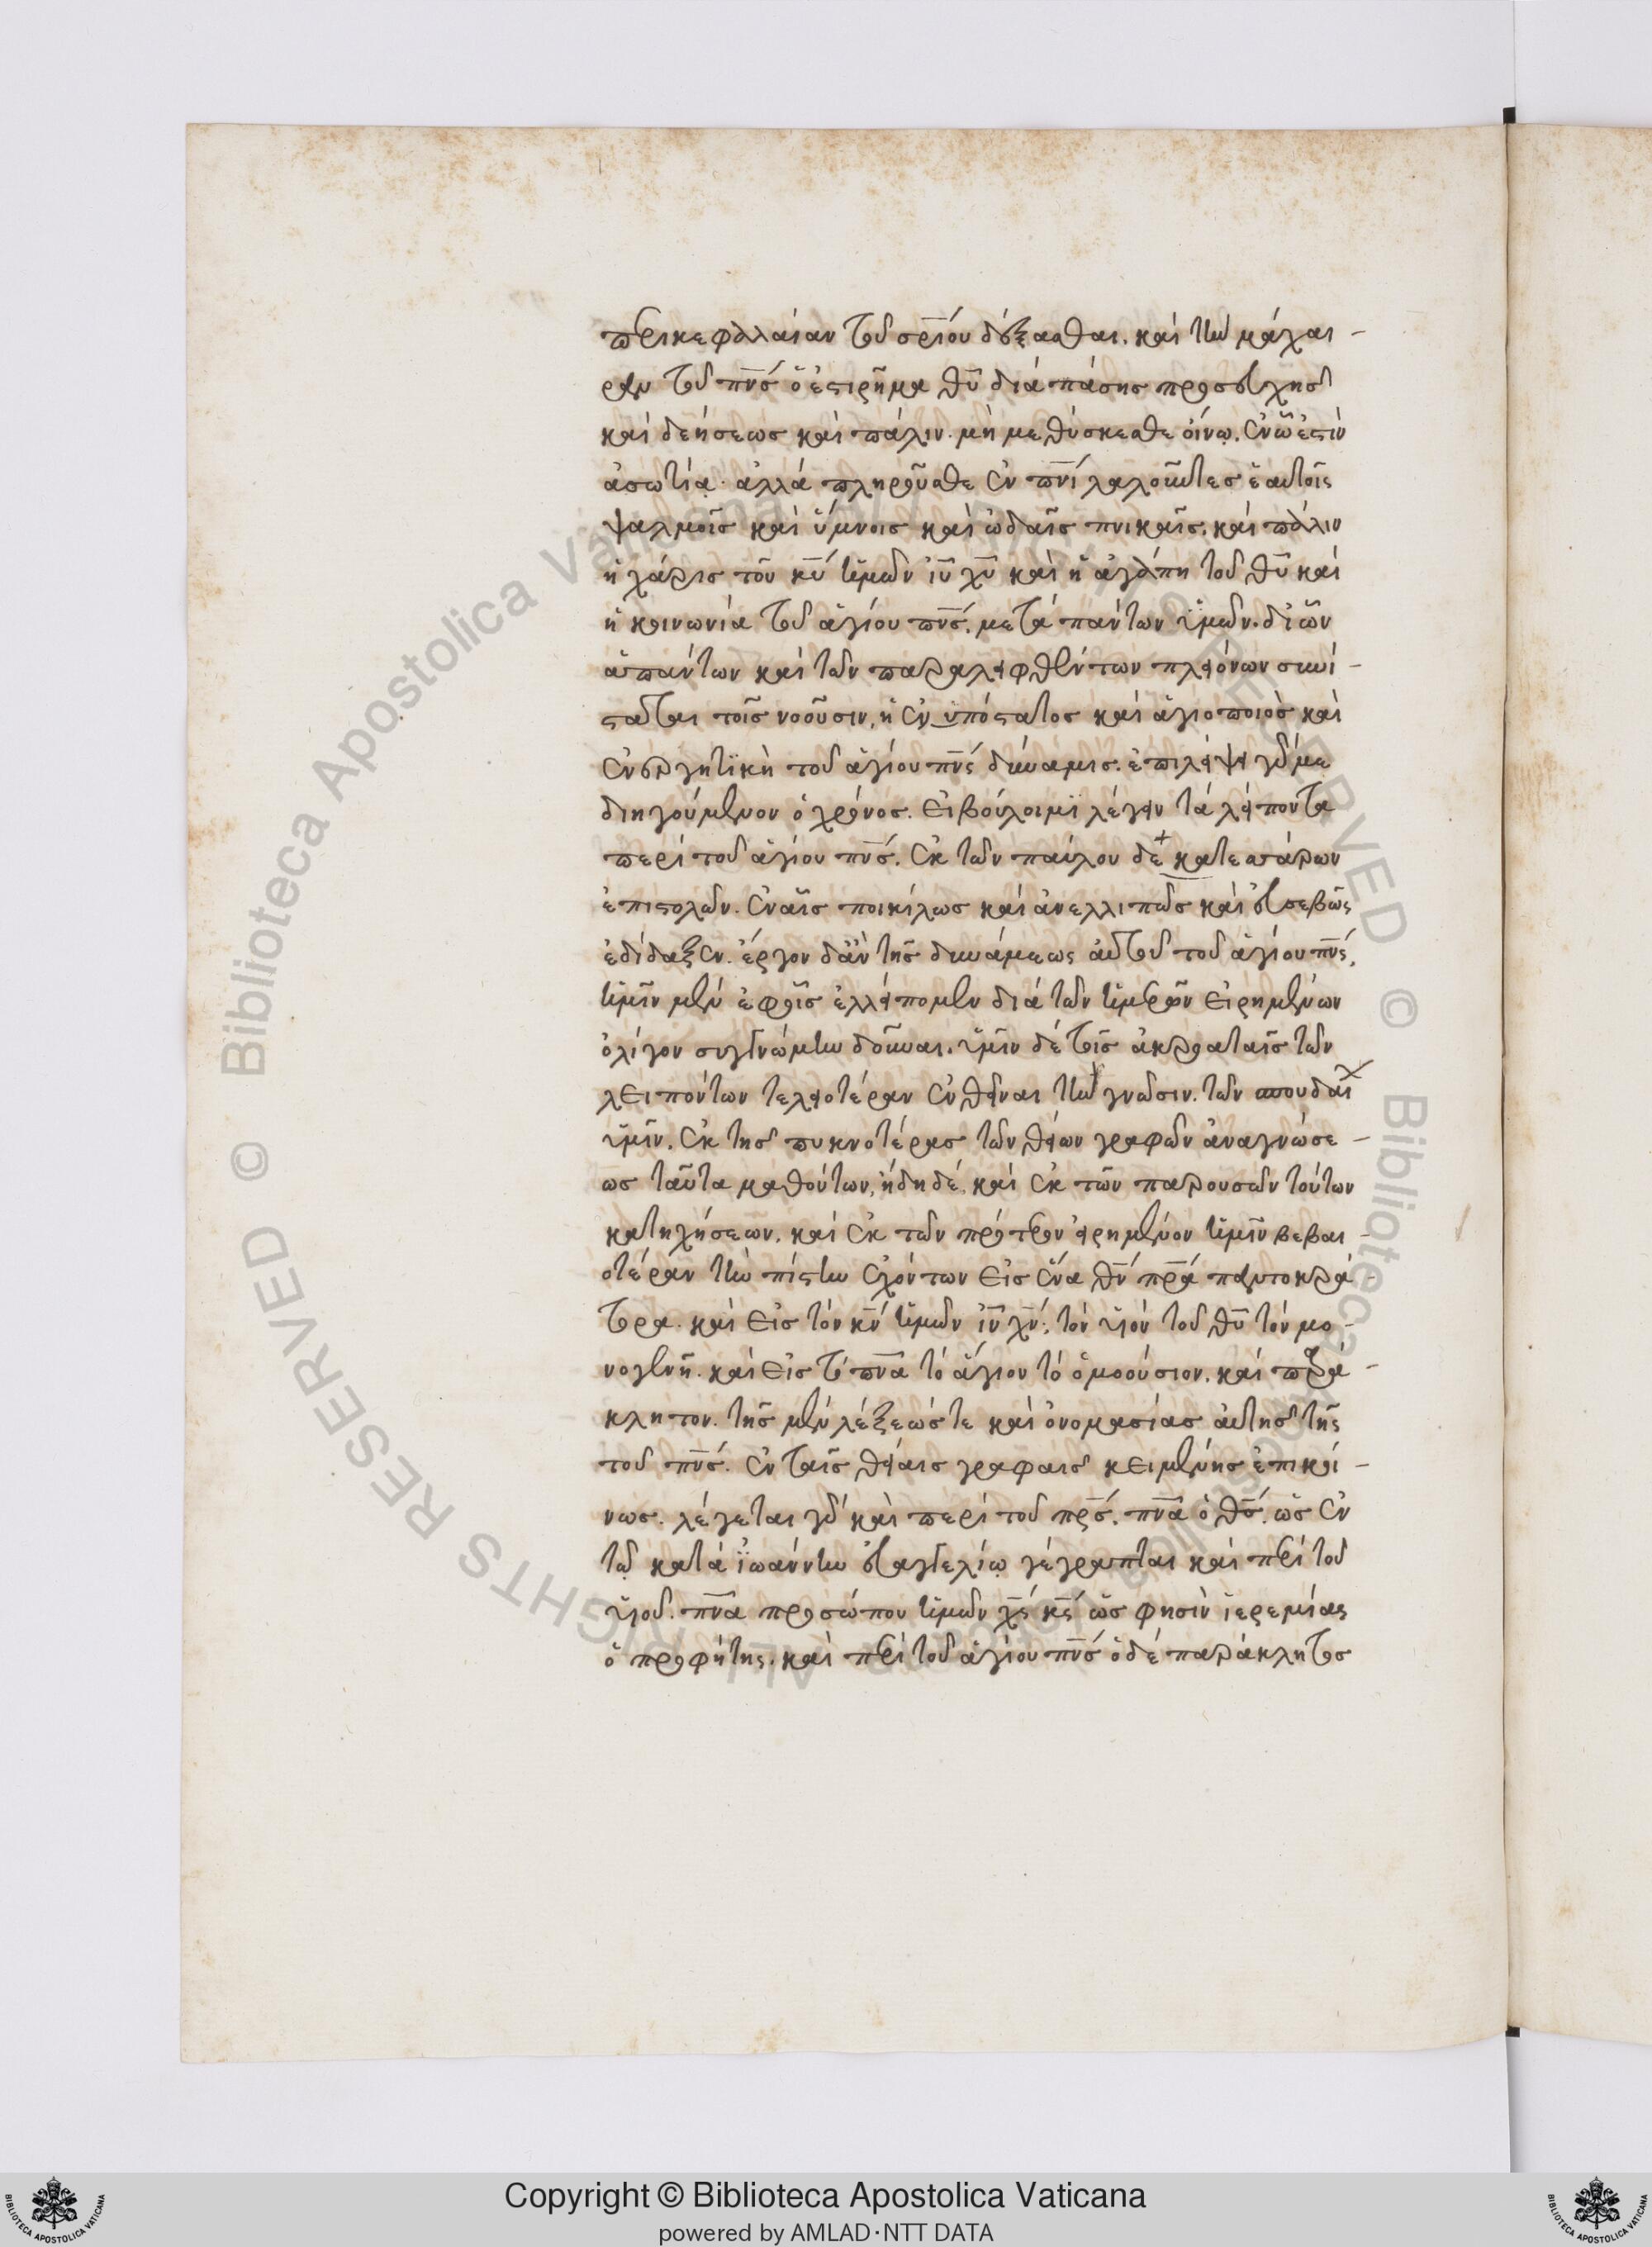 περικεφαλλαίαν τοῦ σρ̅ίου δέξασθαι. καὶ τὴν μάχαι -
ραν τοῦ πν̅ς ὅ ἐστι ρῆμα θ̅υ διὰ πάσης προσευχῆς
καὶ δεήσεως καὶ πάλιν. μὴ μεθύσκεσθε οἴνῳ. ἐν ᾧ ἐστὶν
ἀσωτία. ἀλλὰ πληροῦσθε ἐν πν̅ι λαλοῦντες ἑαυτοῖς
ψαλμοῖς καὶ ὕμνοις καὶ ὠδαῖς πνικαῖς. καὶ πάλιν
ἡ χάρις τοῦ κ̅υ ἡμῶν ἰ̅υ χ̅υ καὶ ἡ ἀγάπη τοῦ θ̅υ καὶ
ἡ κοινωνία τοῦ ἁγίου πν̅ς. μετὰ πάντων ὑμῶν. δι ὧν
ἁπάντων καὶ τῶν παραλειφθέντων πλειόνων συνί -
σταται τοῖς νοοῦσιν, ἡ ἐνυπόστατος καὶ ἁγιοποιὸς καὶ
ἐνεργητϊκὴ τοῦ ἁγίου πν̅ς δύναμις. ἐπιλείψει γάρ με
διηγούμενον ὁ χρόνος. εἰ βούλοιμϊ λέγειν τὰ λείποντα
περὶ τοῦ ἁγίου πν̅ς. ἐκ τῶν παύλου δεκατεσσάρων
ἐπιστολῶν. ἐν αἷς ποικίλως καὶ ἀνελλιπῶς καὶ εὐσεβῶς
ἐδίδαξεν. ἔργον δἂν τῆς δυνάμεως αὐτοῦ τοῦ ἁγίου πν̅ς,
ἡμῖν μὲν ἐφοῖς ἐλλείπομεν διὰ τῶν ἡμερῶν εἰρημένων
ὀλίγον συγγνώμην δοῦναι. ὑμῖν δὲ τοῖς ἀκροαταῖς τῶν
λειπόντων τελειοτέραν ἐνθεῖναι τὴν γνῶσιν. τῶν σπουδαῖ
ὑμῖν. ἐκ τῆς πυκνοτέρας τῶν θείων γραφῶν ἀναγνώσε -
ως ταῦτα μαθόντων, ἤδη δὲ, καὶ ἐκ τῶν παρουσῶν τούτων
κατηχήσεων. καὶ ἐκ τῶν πρότερον εἰρημένον ἡμῖν βεβαι -
οτέραν τὴν πίστιν ἐχόντων εἰς ἕνα θ̅ν πρ̅α παντοκρά -
τορα. καὶ εἰς τὸν κ̅ν ἡμῶν ἰ̅ν χ̅ν, τὸν υἱὸν τοῦ θ̅υ τὸν μο -
νογενῆ. καὶ εἰς τὸ πν̅α τὸ ἅγιον τὸ ὁμοούσιον. καὶ παρά -
κλητον. τῆς μὲν λέξεώς τε καὶ ὀνομασίας αὐτῆς τῆς
τοῦ πν̅ς. ἐν ταῖς θείαις γραφαῖς κειμένης ἐπικοί -
νως. λέγεται γὰρ καὶ περὶ τοῦ πρ̅ς. πν̅α ὁ θ̅ς. ὡς ἐν
τῷ κατὰ ἰωάννην εὐαγγελίῳ γέγραπται καὶ περὶ τοῦ
υἱοῦ. πν̅α προσώπου ἡμῶν χ̅ς κ̅ς ὥς φησὶν ἱερεμίας
ὁ προφήτης. καὶ περὶ τοῦ ἁγίου πν̅ς ὁ δὲ παράκλητος
Copyright © Biblioteca Apostolica Vaticana
powered by AMLAD·NTT DATA